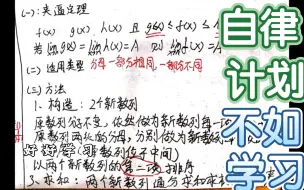 (一):夹逼定理
f(x) g(x) h(x) 且 g(x) ≤ f(x) ≤
若 lim g(x) = lim h(x) = A 则 lim f(x) = A
(二) 适用类型 分母一部分相同,一部分不同
(三) 方法
1. 构造:2个新数列
原数列分子不变,依然做为新数列每一项
原数列两处的分母,分别做为新数列
(原数列位于中间)
以两个新数列的第二项排序
求和:两个新数列通分求和
自律
计划
不如
学习